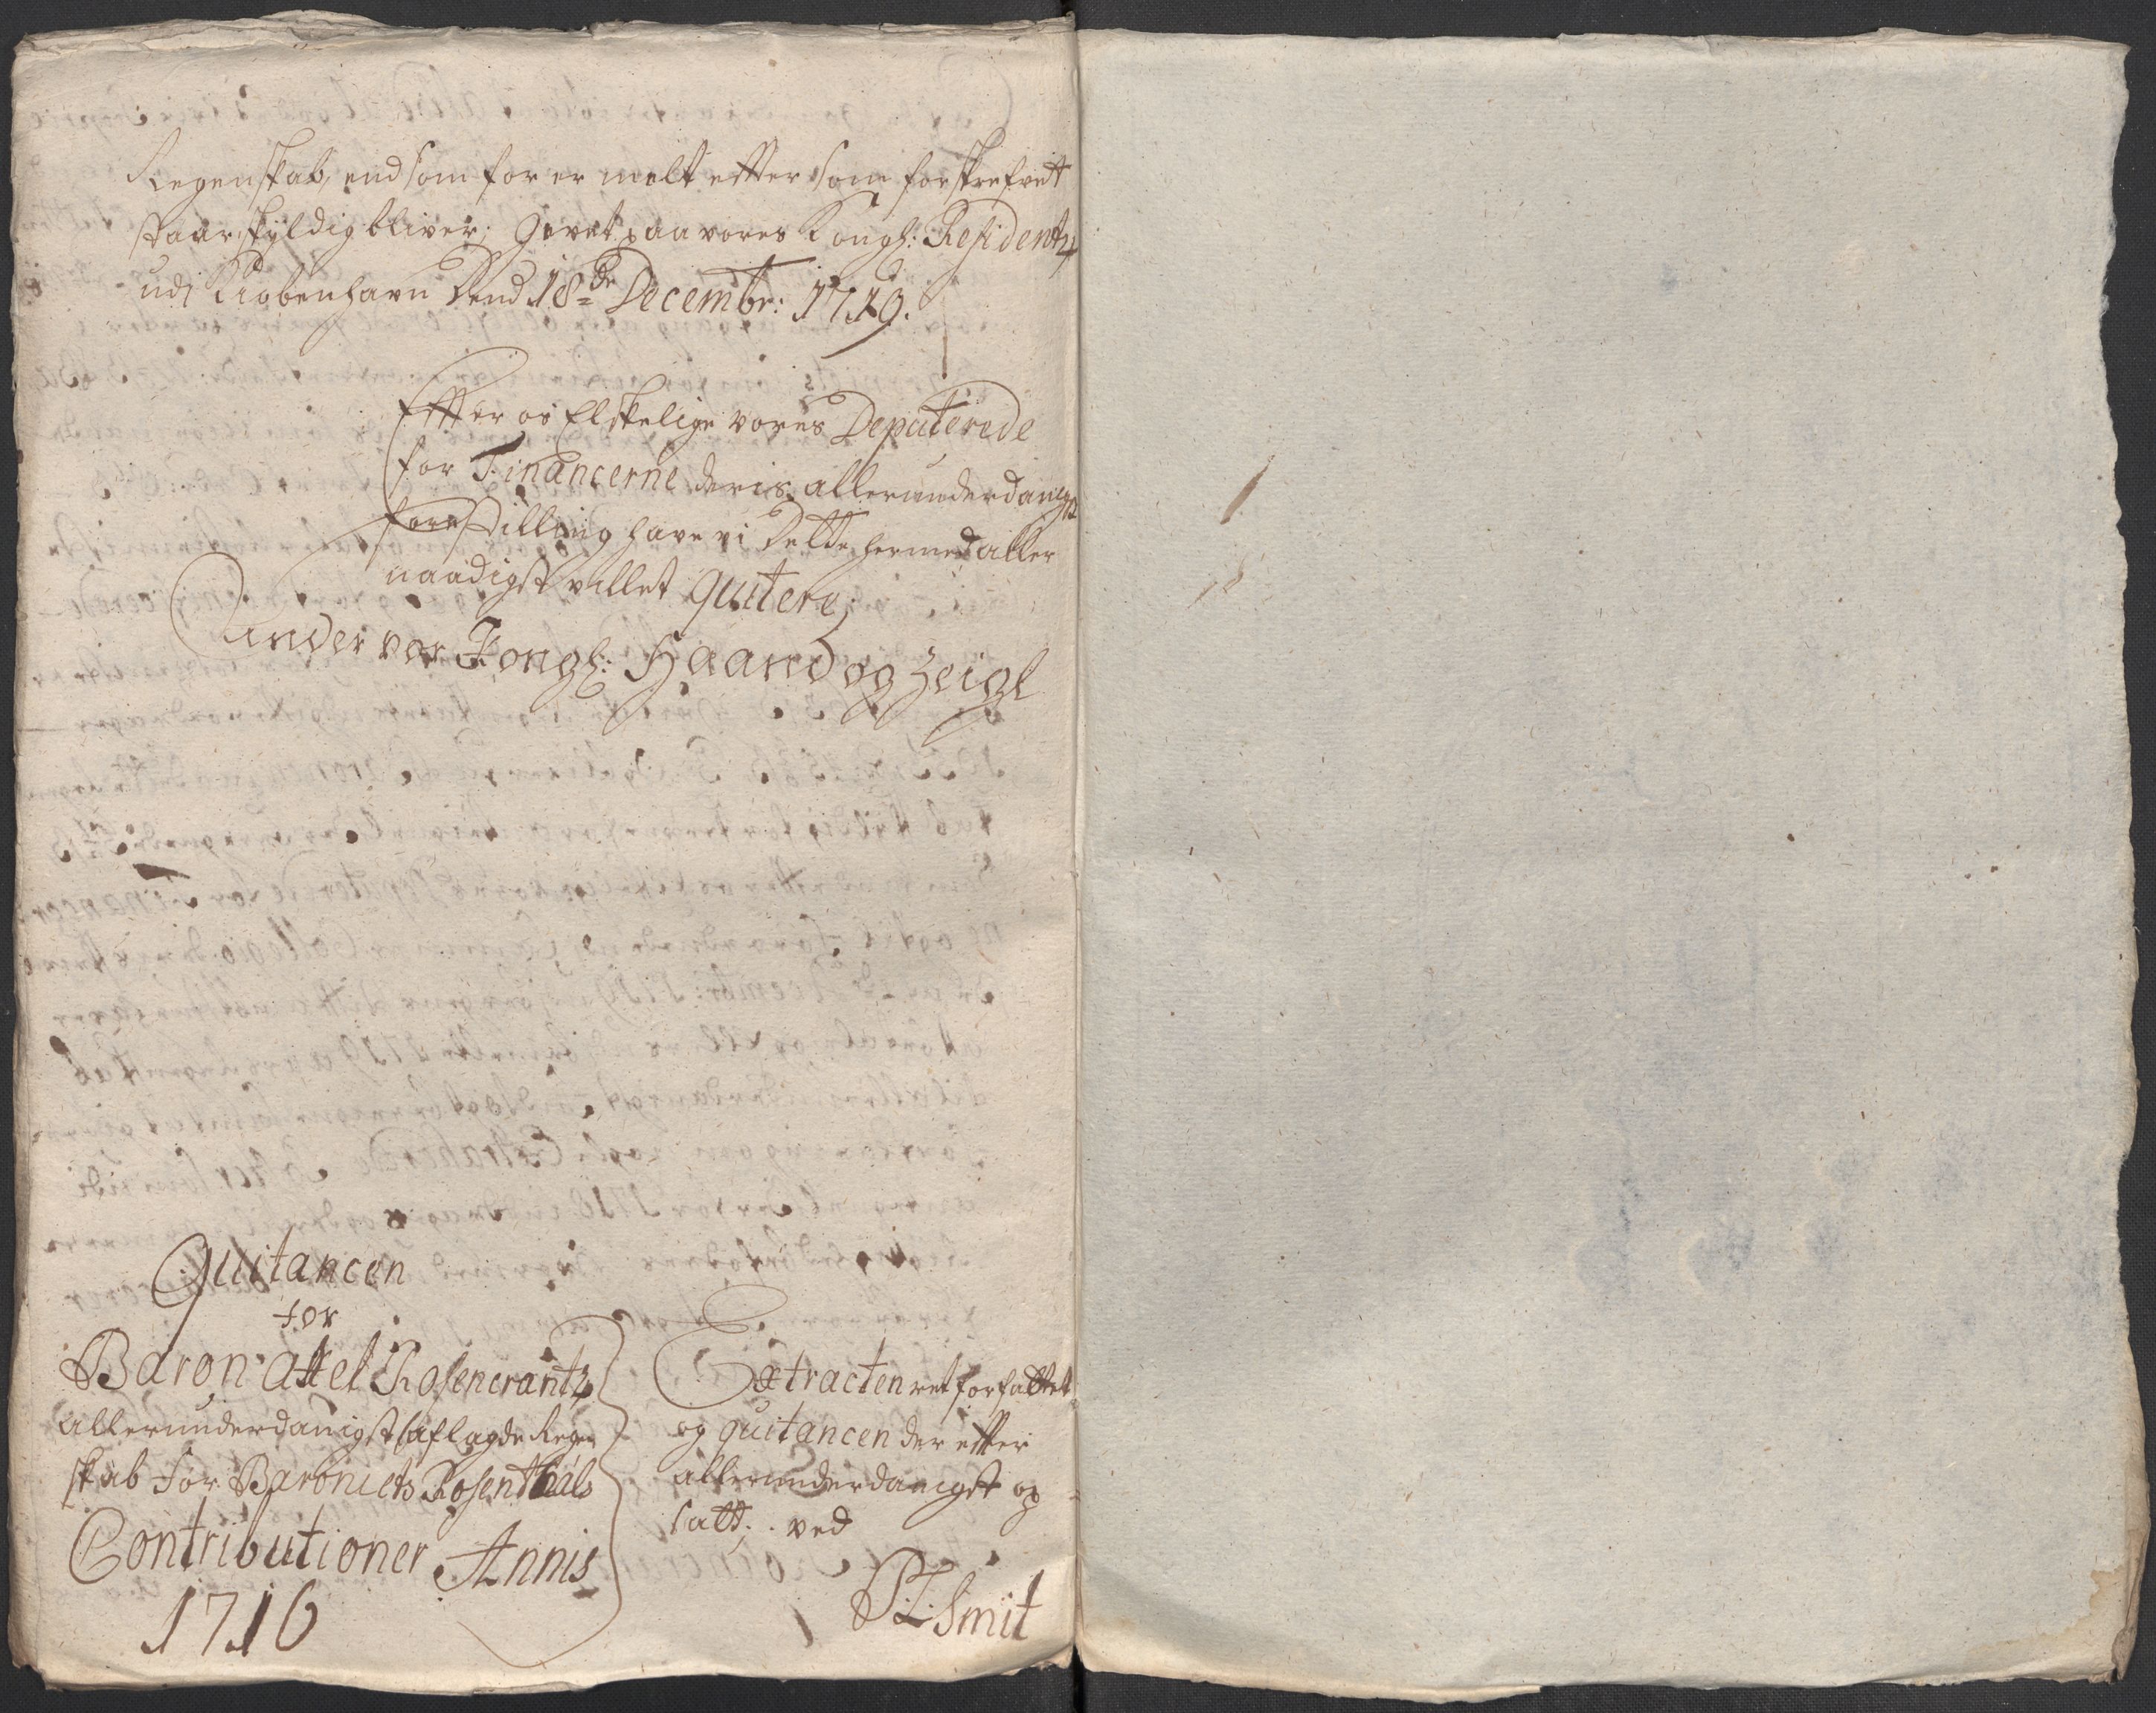 Regenskab, end som for er melt efftersom forskrefvet
staar, skyldig bliver; Givet paa vores Kongl: Residentz
udi Kiøbenhavn Dend 18de Decembr: 1719.
Effter os Elskelige vores Deputerede
for Financerne deris allerunderdanigst
forestilling have vi Dette hermed aller
naadigst villet quitere;
Under vor Kongl: Haand og Zeigl
Quitancen
for
Baron Axel Rosencrantz
allerunderdanigst aflagde Regen
skab for Baroniets Rosenthals
Contributioner Annis
1716
Extracten ret forfattet
og quitancen der effter
allerunderdanigst op
satt; ved
P: L: Smit